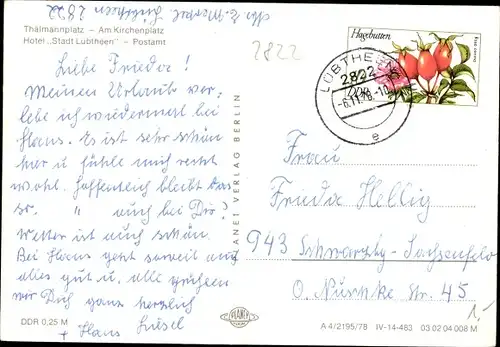 Thälmannplatz – Am Kirchenplatz
Hotel „Stadt Lübtheen" – Postamt
2822
Hagebutten
LÜBTHEEN
2822
DDR
-6.11.78.-10
e
Liebe Frieda!
Meinen Urlaub ver-
lebe ich wiedermal bei
Hans. Es ist sehr schön
hier u fühle mich recht
wohl. Hoffentlich bleibt das
so. " auch bei Dir?
Wetter ist auch schön
Bei Hans geht soweit auch
alles gut u. alle grüßen
wir Dich ganz herzlich
Liesel
+ Hans
PLANET VERLAG BERLIN
Frau
Frieda Hellig
943 Schwarzbg-Sachsenfeld
O. Nuschke Str. 45
1,-
DDR 0,25 M
PLANET
A 4/2195/78 IV-14-483 03 02 04 008 M